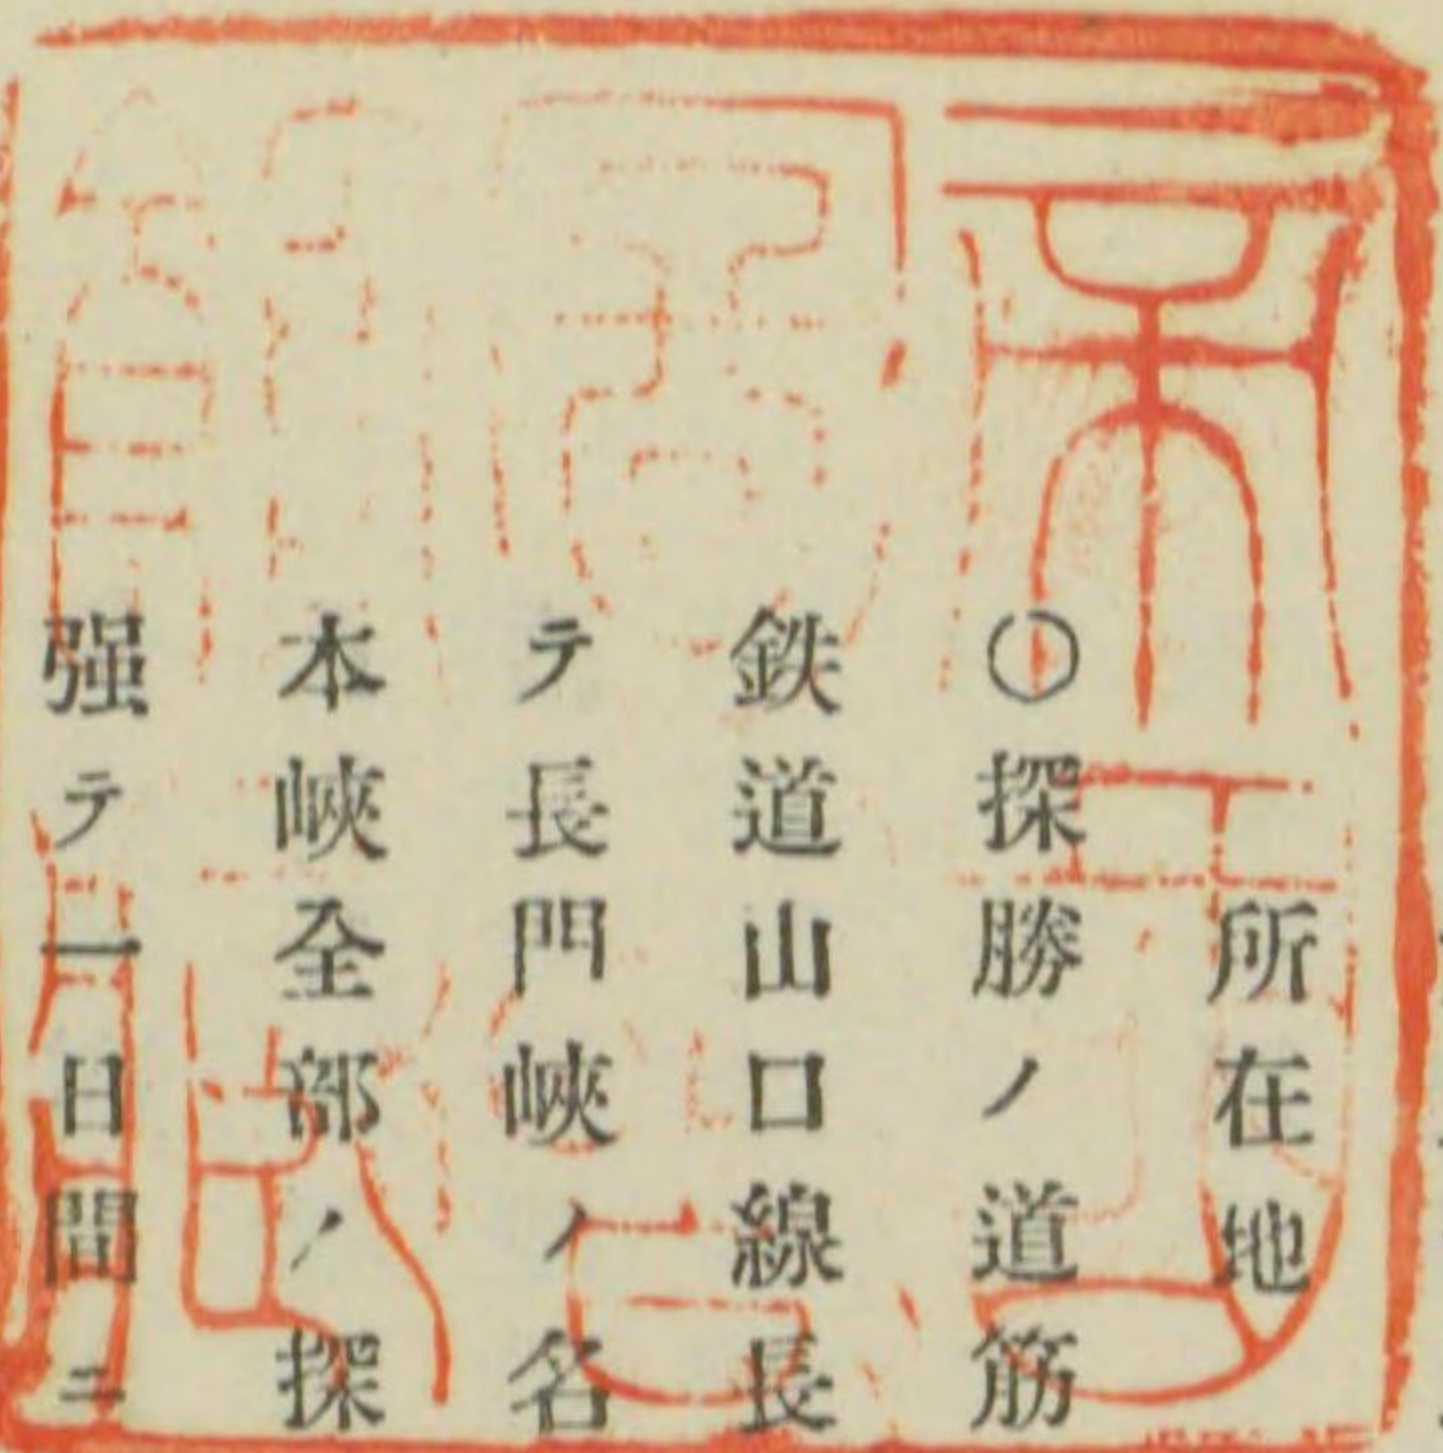 所在地
〇探勝ノ道筋
鉄道山口線長
テ長門峽ノ名
本峽全部ノ探
强テ一日間ニ